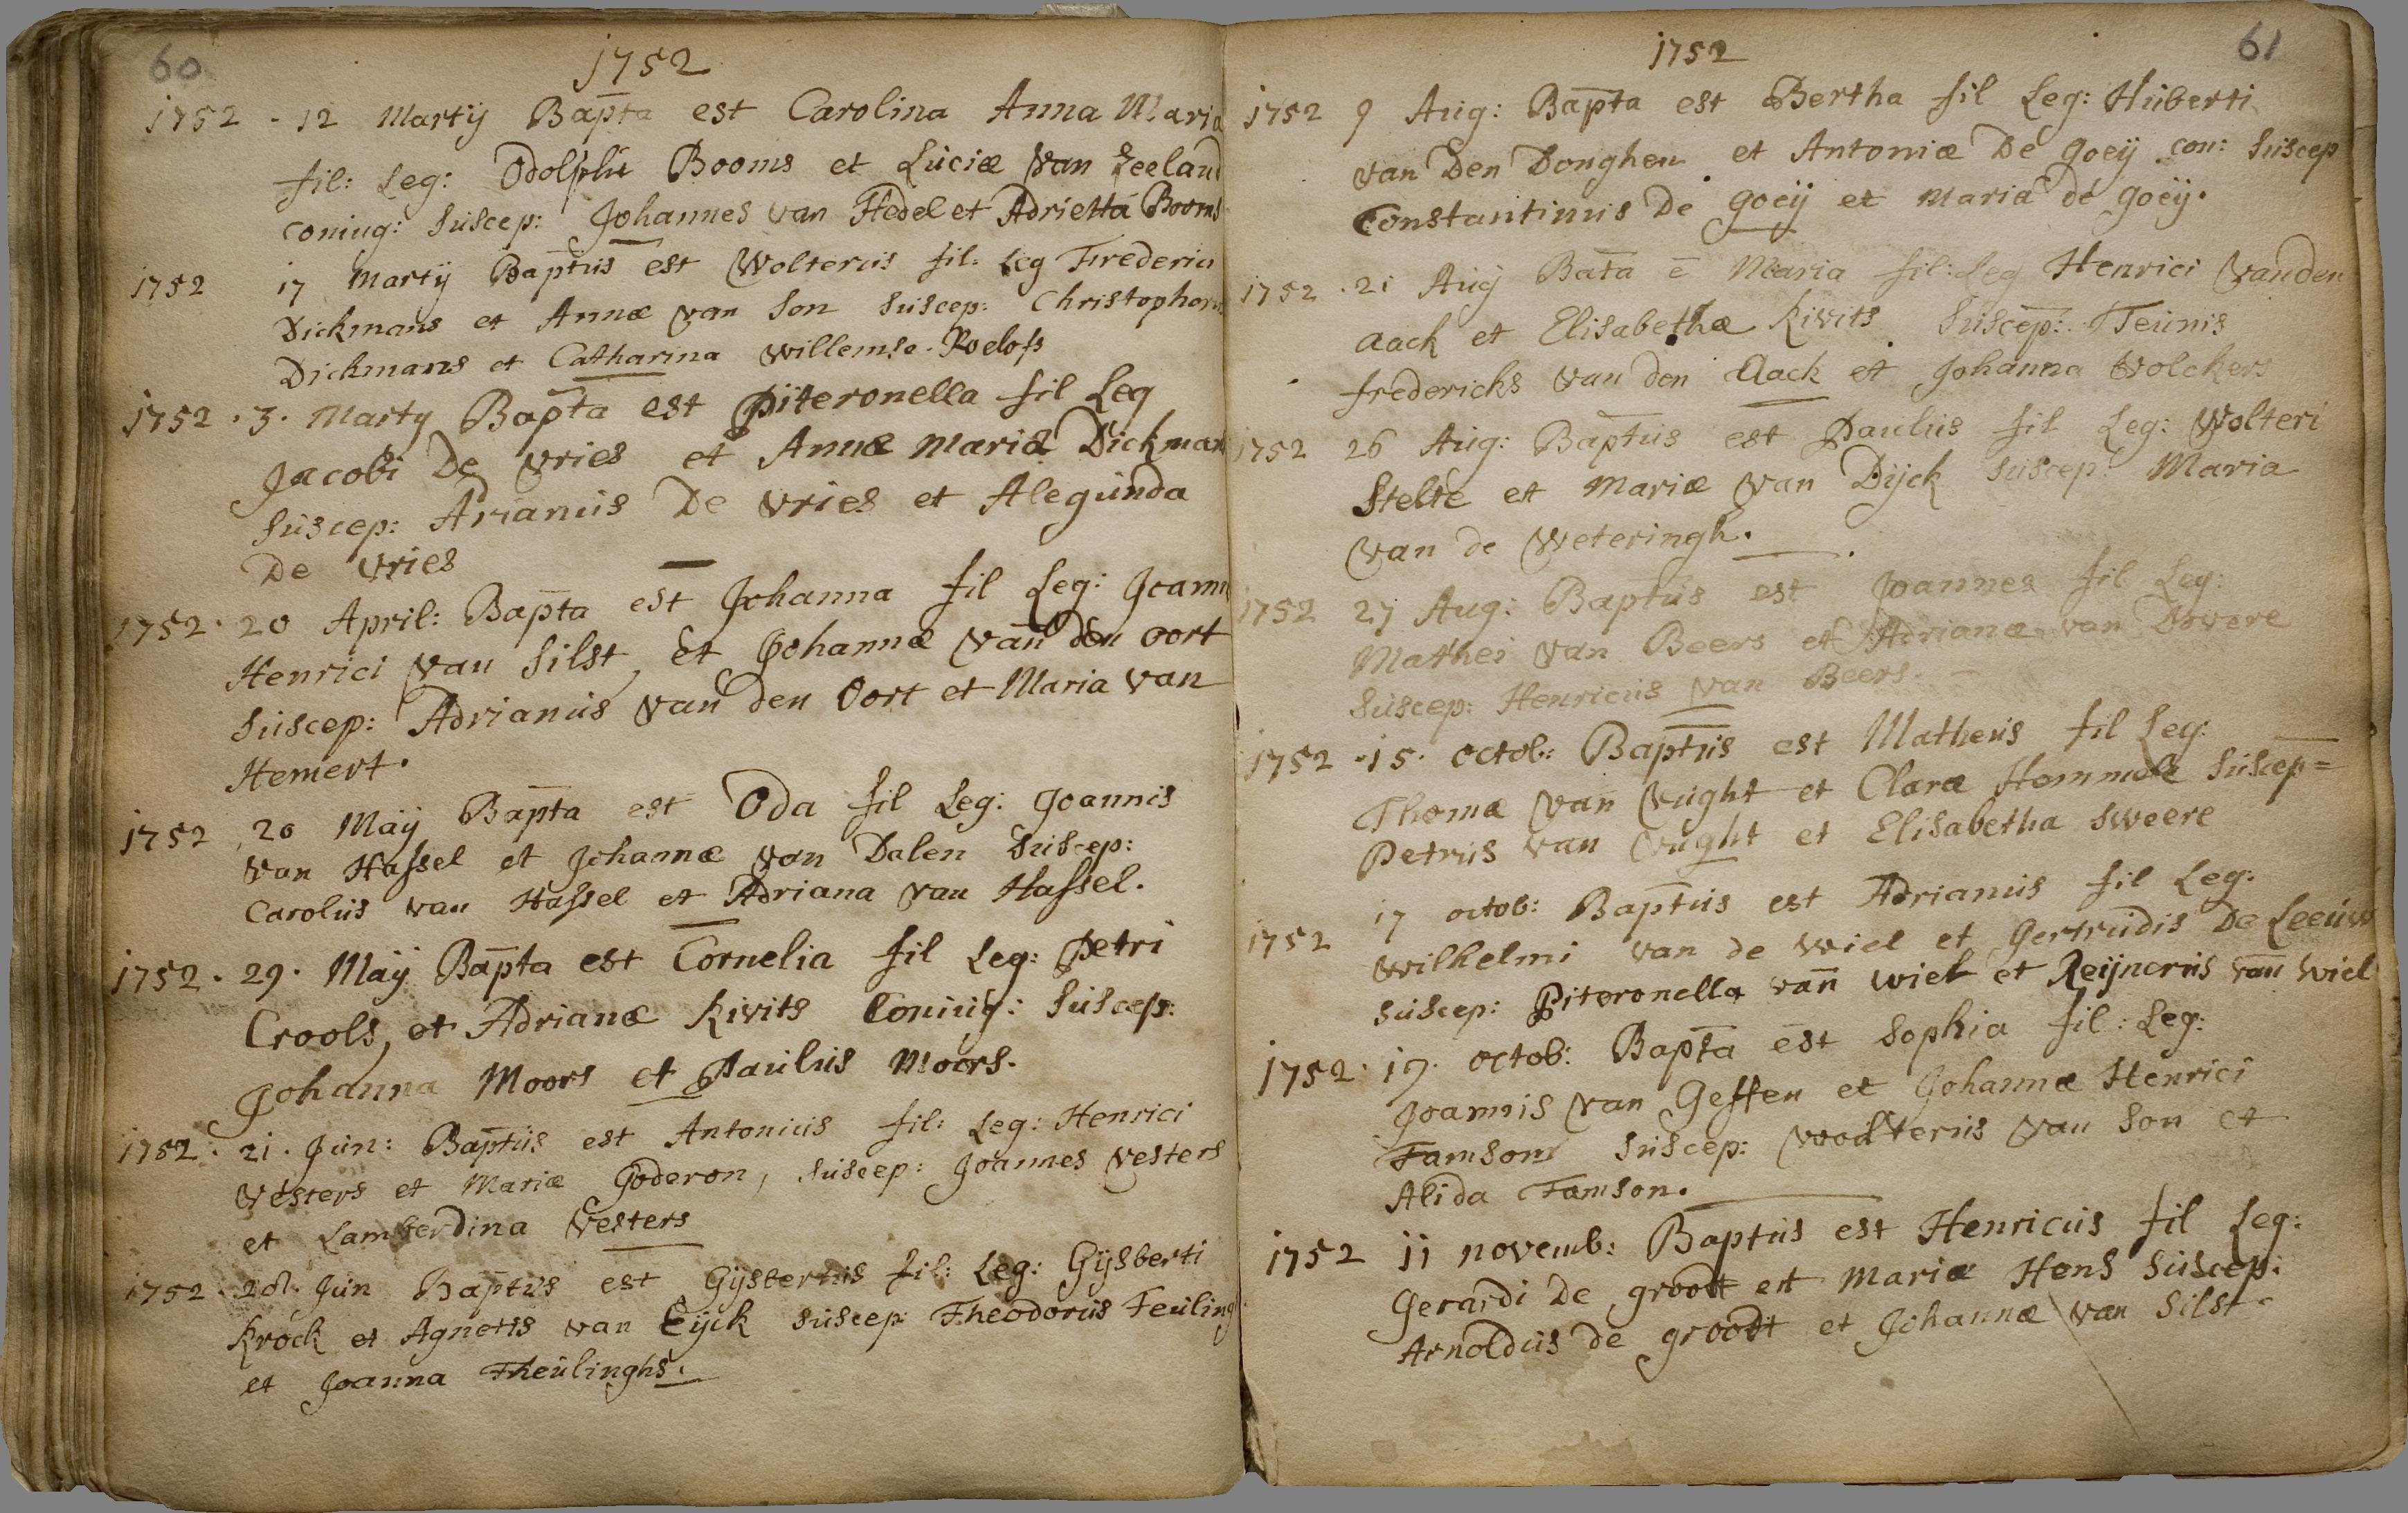 60
1752
1752 - 12 Martij Bapta est Carolina Anna Maria
fil: Leg: Odolphi Booms et Luciæ van Zeeland
coniug: Suscep: Johannes van Hedel et Adrietta Booms
1752 17 Martij Baptus est Wolterus fil: Leg Frederici
Dickmans et Annæ van Son Suscep: Christophorus
Dickmans et Catharina Willemse Roelofs
1752 . 3 . Marty Bapta est Piteronella fil Leg
Jacobi De Vries et Annæ Maria Dickmans
Suscep: Arianus De Vries et Alegunda
De Vries
1752 . 20 April: Bapta est Johanna fil Leg: Joannis
Henrici van Silst, et Johannæ van den oort
Suscep: Adrianus van den Oort et Maria van
Hemert.
1752 20 Maÿ Bapta est Oda fil Leg: Joannis
van Hassel et Johannæ van Dalen Suscep:
Carolus van Hassel et Adriana van Hassel.
1752 . 29 . Maÿ Bapta est Cornelia fil Leg: Petri
Crools, et Adrianæ Kivits Coniug: Suscep:
Johanna Moors et Paulus Moors.
1752 . 21 . Jun: Baptus est Antonius fil: Leg: Henrici
Vesters et Mariæ Goderon, Suscep: Joannes Vesters
et Lamberdina Vesters
1752 . 28. Jun Baptus est Gijsbertus fil: Leg: Gijsberti
Krock et Agnetis van Eijck Suscep Theodorus Teuling
et Joanna Theulinghs.
61
1752
1752 9 Aug: Bapta est Bertha fil Leg: Huberti
van Den Donghen et Antoniæ De goeij con: Suscep
Constantinus De goeij et Maria de goeij.
1752 . 21 Aug Bata e Maria fil: Leg Henrici vanden
aack et Elisabethæ Kivits Suscep: Teunis
fredericks van den Aack et Johanna Volckers
1752 26 Aug: Baptus est Paulus fil Leg: Wolteri
Stelte et Mariæ van Dijck Suscep: Maria
van de Weteringh.
1752 27 Aug: Baptus est Joannes fil Leg:
Mathei van Beers et Adrianæ van Dovere
Suscep: Henricus van Beers.
1752 . 15 . octob: Baptus est Matheus fil Leg:
Thomæ van Vught et Claræ Hommels Suscep=
Petrus van Vught et Elisabetha Sweere
1752 17 octob: Baptus est Adrianus fil Leg:
Wilhelmi van de Wiel et Gertrudis De Leeuw
Suscep: Piteronella van wiel et Reijnerus van Wiel
1752 . 19 . octob: Bapta est Sophia fil: Leg:
Joannis van Geffen et Johannæ Henrici
Famson Suscep: Woolterus van Son et
Alida Famson.
1752 11 novemb: Baptus est Henricus fil Leg:
Gerardi De groodt et Mariæ Hens Suscep:
Arnoldus de groodt et Johannæ van Silst.